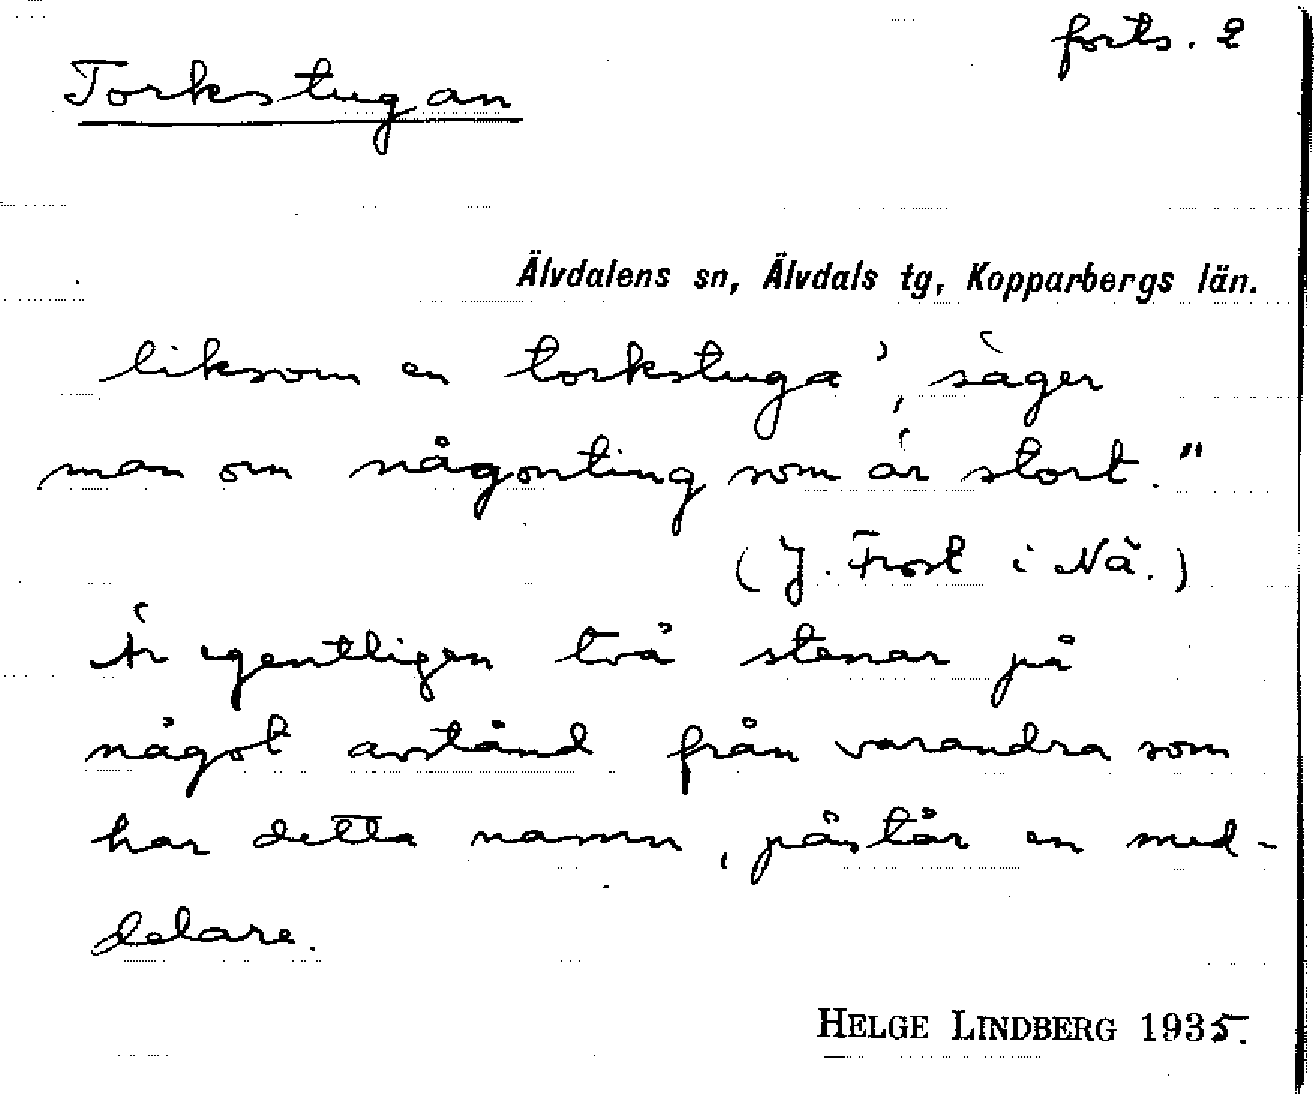 forts. 2
Torkstugan
Älvdalens sn, Älvdals tg, Kopparbergs län.
liksom en torkstuga', säger
man om någonting som är stort."
(J. Frost i Nä.)
Är egentligen två stenar på
något avstånd från varandra som
har detta namn, påstår en med-
delare.
HELGE LINDBERG 1935.